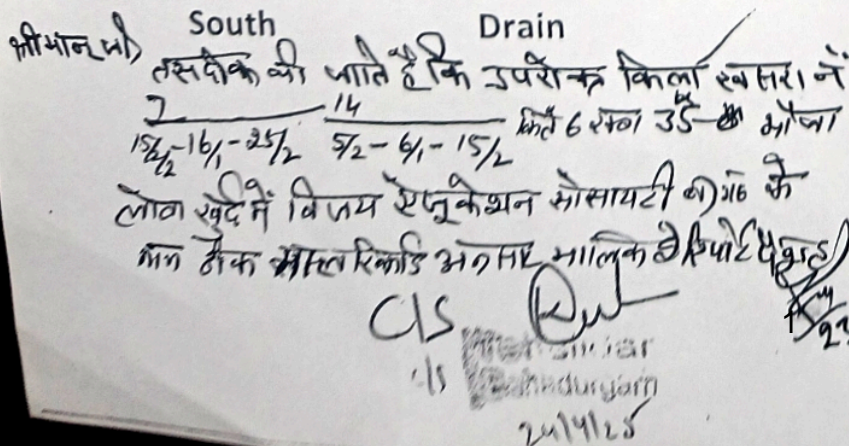 South Drain
श्रीमान जी
तसदीक की जाते है कि उपरोक्त किला खसरा नं
7 14
15/2/2-16/1-25/2 5/2-6/1-15/2 किते 6 मौजा
खुर्द में विजय ऐजूकेशन सोसायटी के
ठीक रिकार्ड अनुसार मालिक है रिपोर्ट पेश है
C/S
C/S Bahadurgarh
24/4/25